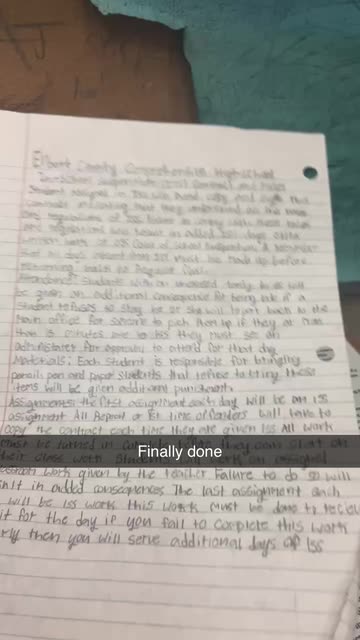 Elbert County Comprehensive High School
In-School Suspension (ISS) Contract and Rules
Student assigned in ISS will read, copy and sign this
Contract indicating that they understand all the rules
and regulations of ISS. Failure to comply with these rules
and regulations will result in added ISS days
of School Suspension. A reminder
that all days absent from ISS must be made up before
returning back to regular class.
Attendance: Students with an unexcused tardy to ISS will
be given an additional consequence for being late if a
student refuses to stay he or she will report back to the
main office for someone to pick them up if they are more
than 15 minutes late to ISS they must see an
administrator for approval to attend for that day
Materials: Each student is responsible for bringing
pencil, pen and paper students that refuse to bring these
items will be given additional punishment.
Assignments the first assignment each day will be an ISS
assignment All Repeat or 1st time offenders will have to
copy the contract each time they are given ISS All work
must be turned in they can start on
their class work Students assigned
classroom work given by the teacher Failure to do so will
result in added consequences The last assignment each
will be ISS work this work must be done to receive
it for the day if you fail to complete this work
then you will serve additional days of ISS
Finally done